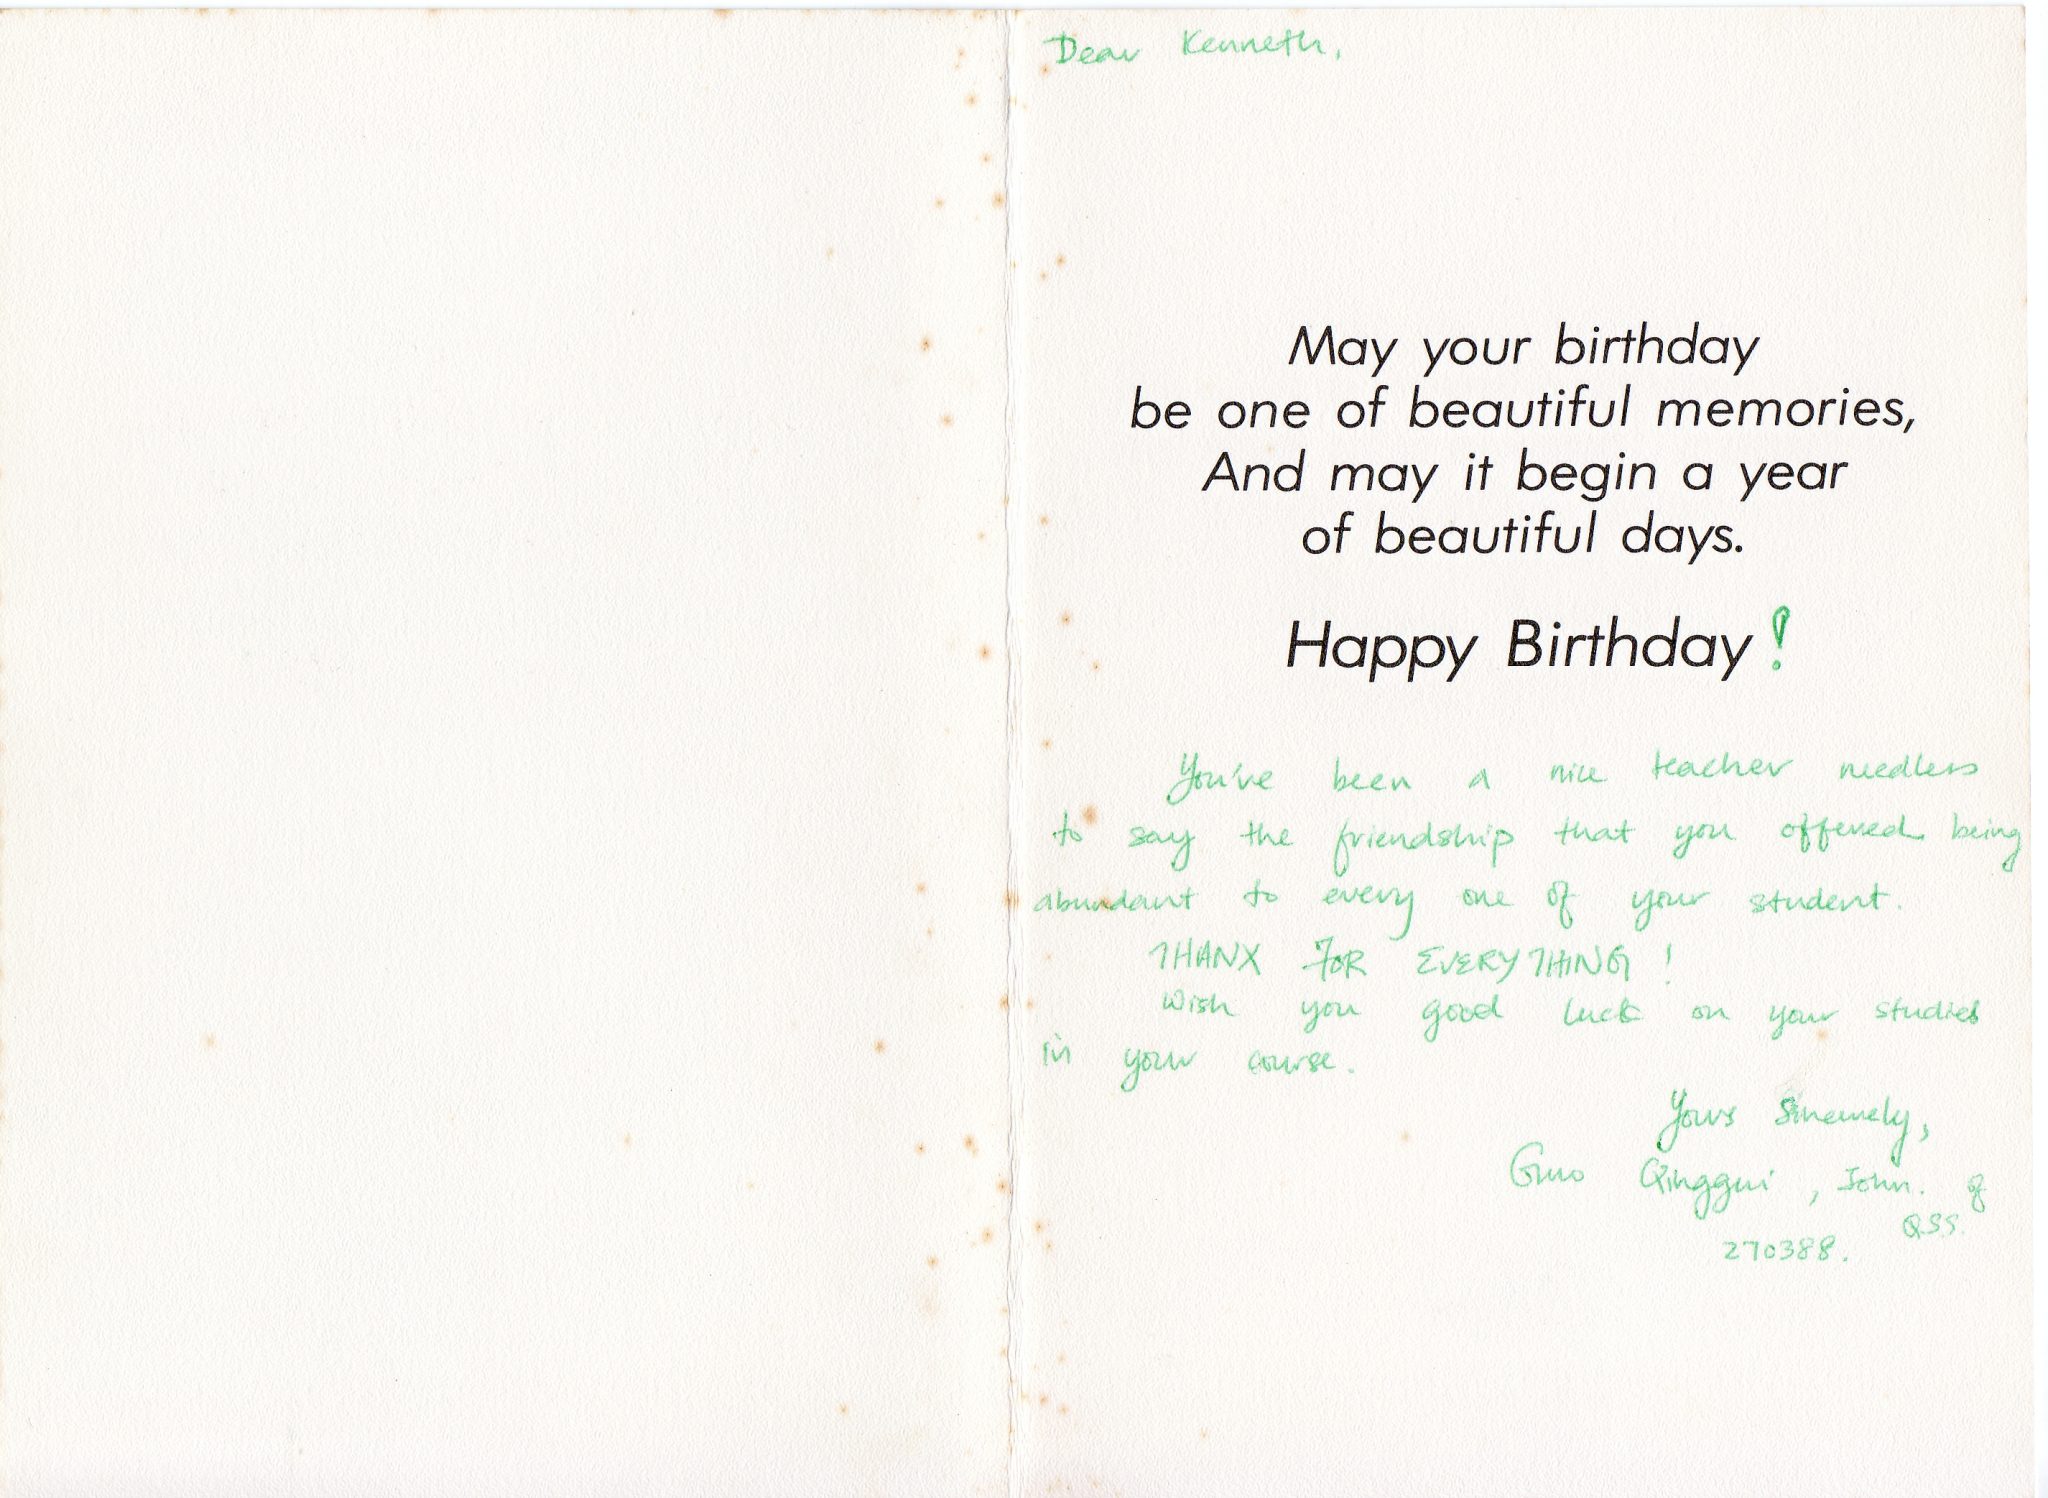 Dear Kenneth,
May your birthday
be one of beautiful memories,
And may it begin a year
of beautiful days.
Happy Birthday!
You've been a nice teacher needless
to say the friendship that you offered being
abundant to every one of your student.
THANX FOR EVERYTHING!
Wish you good luck on your studies
in your course.
Yours Sincerely,
Guo Qinggui, John. of
QSS.
270388.